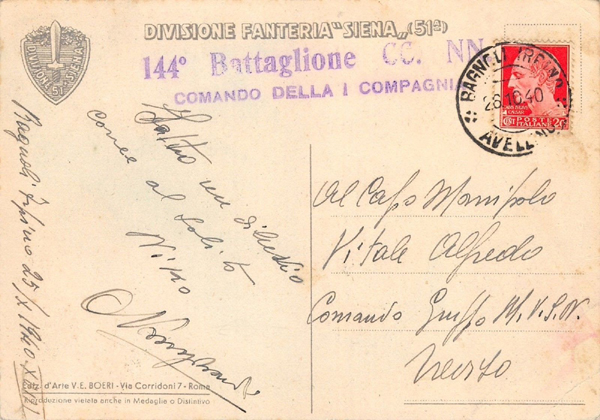 DIVISIONE FANTERIA "SIENA" (51ª)
DIVISIONE SIENA
51
144º Battaglione CC. NN.
COMANDO DELLA I COMPAGNIA
BAGNOLI IRPINO
28.10.40
AVELLINO
POSTE
ITALIANE
Bagnoli Irpino 25/X 1940 XVIII
come al solito
Al Capo Manipolo
Vitale Alfredo
Comando Gruppo M.V.S.N.
Stab. d'Arte V. E. BOERI - Via Corridoni 7 - Roma
Riproduzione vietata anche in Medaglie o Distintivo